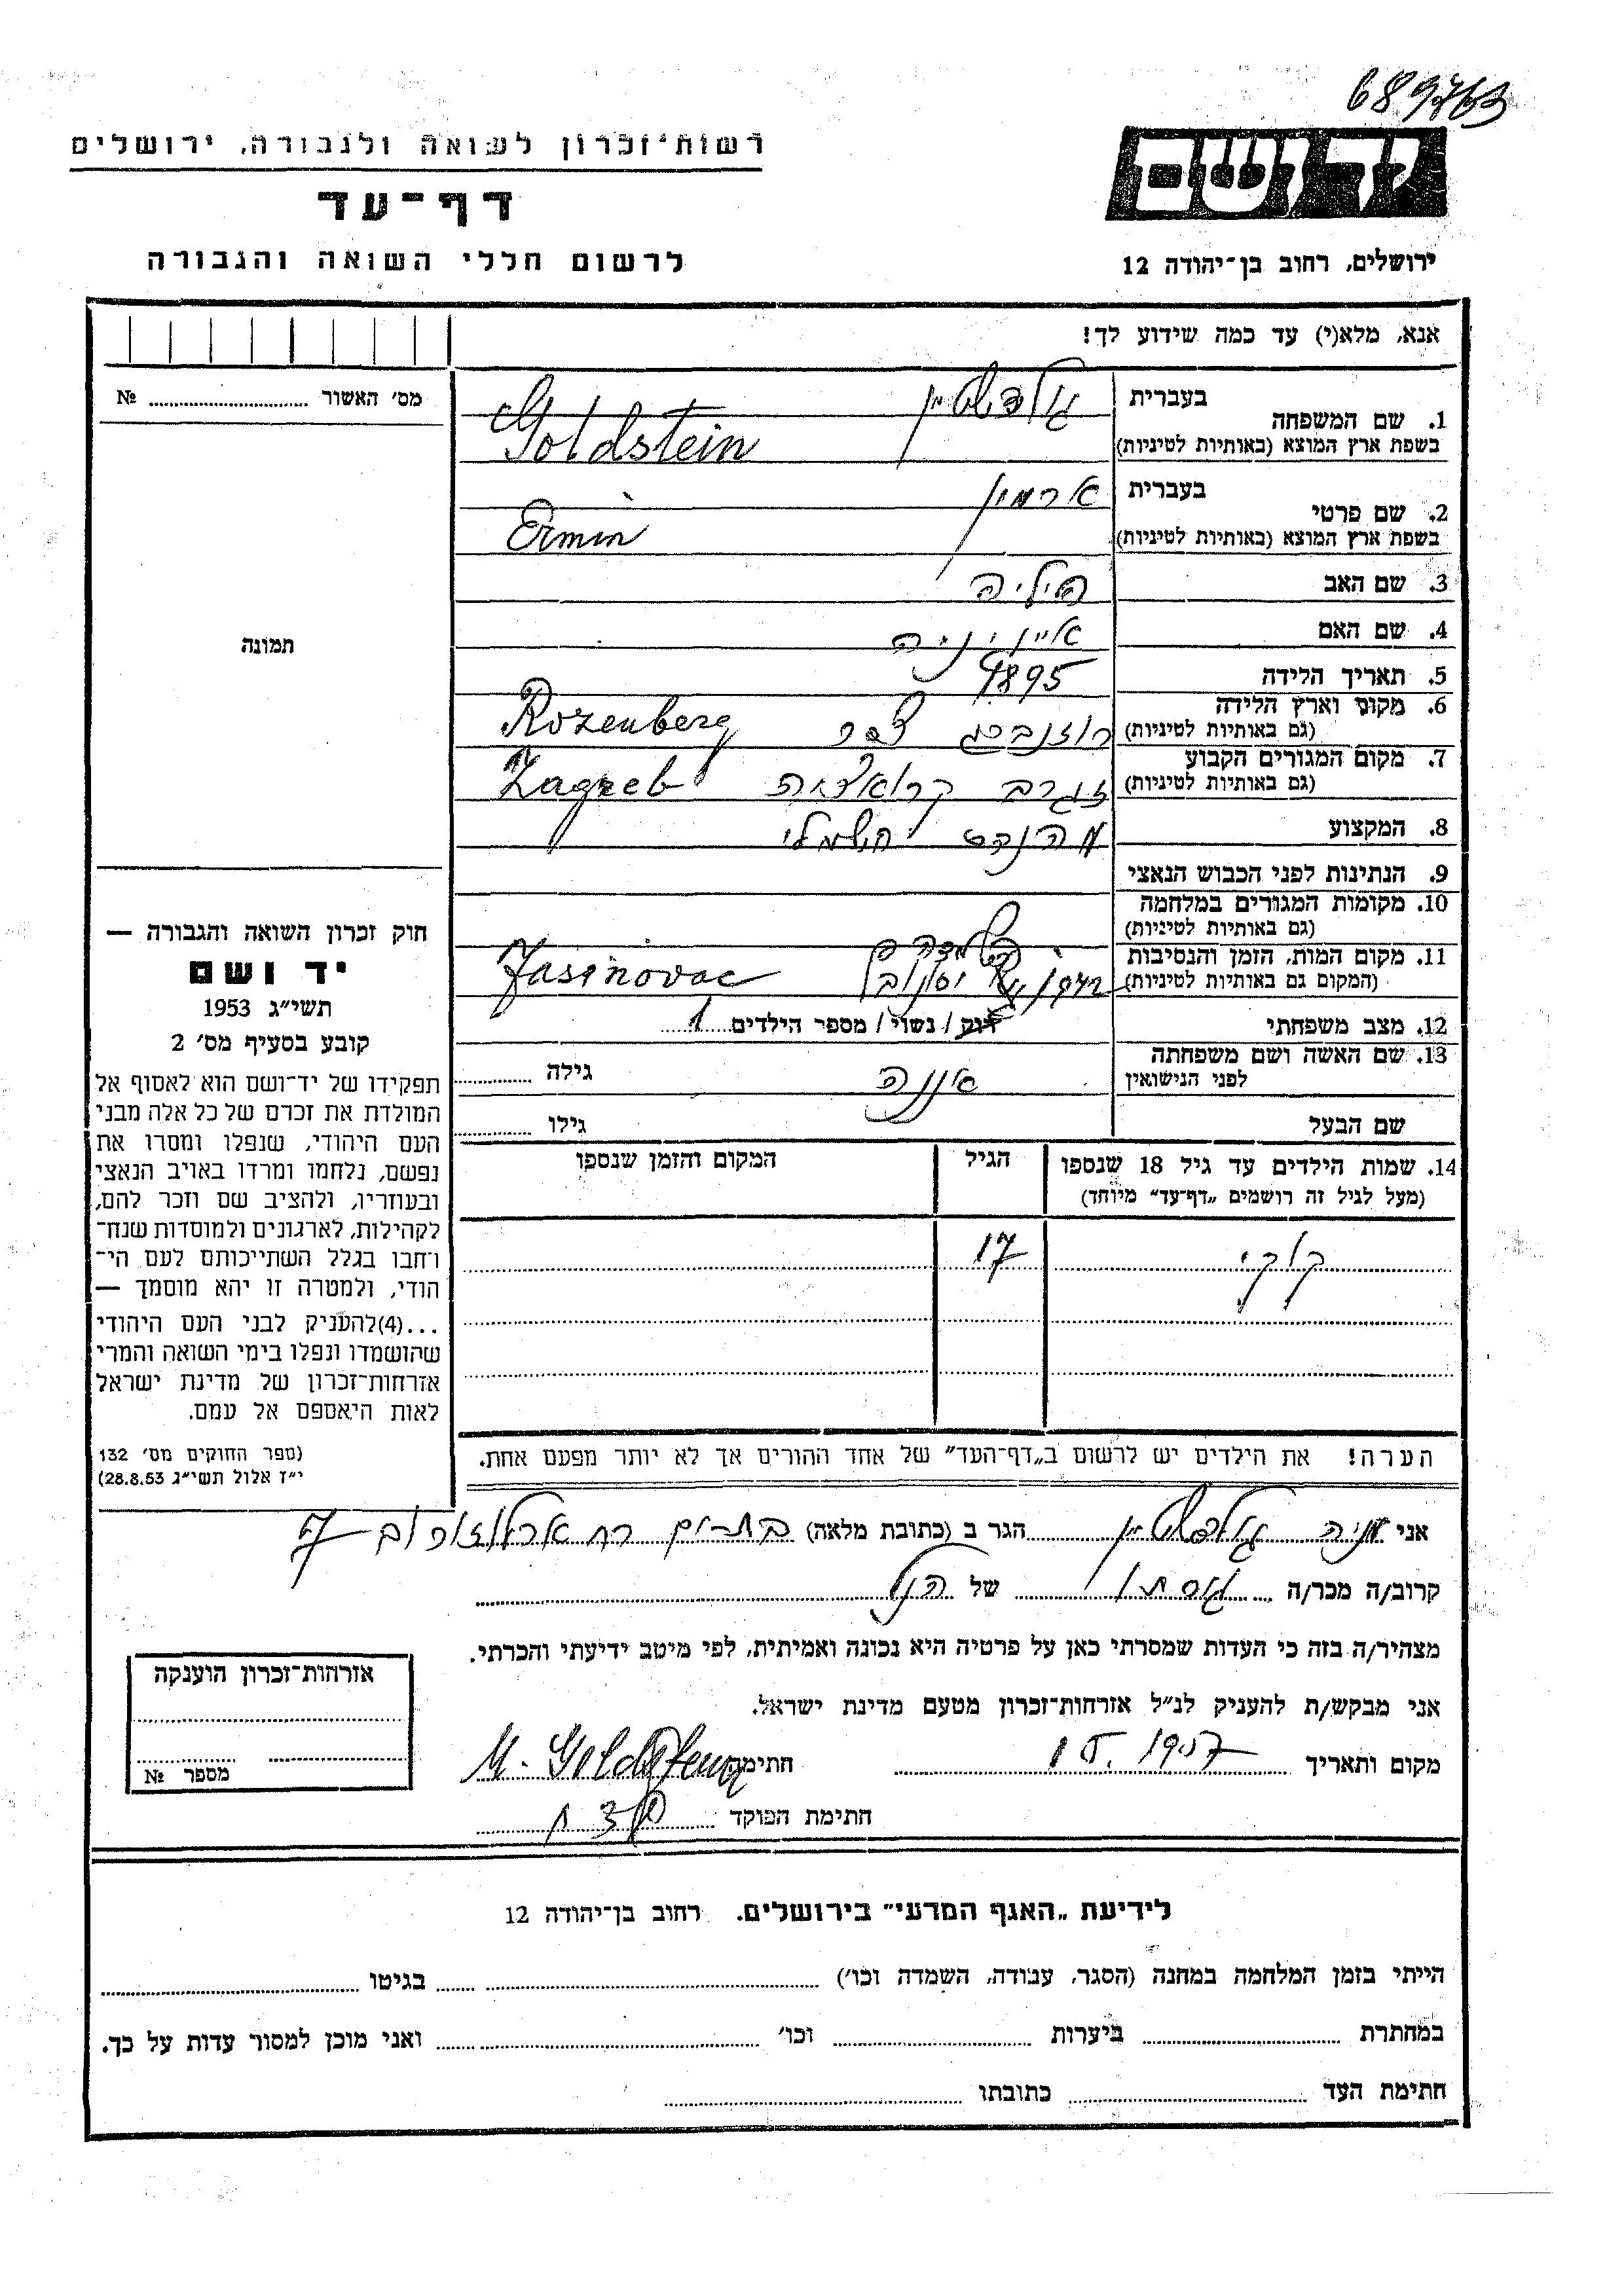 689763
רשות־זכרון לשואה ולגבורה, ירושלים
יד ושם
דף־עד
לרשום חללי השואה והגבורה
ירושלים, רחוב בן־יהודה 12
אנא, מלא(י) עד כמה שידוע לך!
מס׳ האשור № 
1. שם המשפחה
בעברית גולדשטיין
בשפת ארץ המוצא (באותיות לטיניות) Goldstein
2. שם פרטי
בעברית ארמין
בשפת ארץ המוצא (באותיות לטיניות) Ermin
3. שם האב
4. שם האם
5. תאריך הלידה 1895
6. מקום וארץ הלידה
(גם באותיות לטיניות) רוזנברג Rozenberg
7. מקום המגורים הקבוע
(גם באותיות לטיניות) זגרב קרואציה Zagreb
8. המקצוע מהנדס חשמלי
9. הנתינות לפני הכבוש הנאצי
10. מקומות המגורים במלחמה
(גם באותיות לטיניות)
11. מקום המות, הזמן והנסיבות
(המקום גם באותיות לטיניות) Jasinovac
12. מצב משפחתי רוק / נשוי / מספר הילדים 1
13. שם האשה ושם משפחתה
לפני הנישואין גילה
שם הבעל גילו
14. שמות הילדים עד גיל 18 שנספו
(מעל לגיל זה רושמים „דף־עד״ מיוחד)
הגיל
המקום והזמן שנספו
קוקי 17
תמונה
חוק זכרון השואה והגבורה —
יד ושם
תשי״ג 1953
קובע בסעיף מס׳ 2
תפקידו של יד־ושם הוא לאסוף אל
המולדת את זכרם של כל אלה מבני
העם היהודי, שנפלו ומסרו את
נפשם, נלחמו ומרדו באויב הנאצי
ובעוזריו, ולהציב שם וזכר להם,
לקהילות, לארגונים ולמוסדות שנח־
רחבו בגלל השתייכותם לעם הי־
הודי, ולמטרה זו יהא מוסמך —
...(4)להעניק לבני העם היהודי
שהושמדו ונפלו בימי השואה והמרי
אזרחות־זכרון של מדינת ישראל
לאות היאספם אל עמם.
(ספר החוקים מס׳ 132
י״ז אלול תשי״ג 28.8.53)
הערה! את הילדים יש לרשום ב„דף־העד״ של אחד ההורים אך לא יותר מפעם אחת.
אני גולדשטיין הגר ב (כתובת מלאה) בת־ים רח ארלוזורוב 7
קרוב/ה מכר/ה גיסתו של הנ״ל
מצהיר/ה בזה כי העדות שמסרתי כאן על פרטיה היא נכונה ואמיתית, לפי מיטב ידיעתי והכרתי.
אני מבקש/ת להעניק לנ״ל אזרחות־זכרון מטעם מדינת ישראל.
מקום ותאריך 1957 חתימה M. Goldstein
חתימת הפוקד
אזרחות־זכרון הוענקה
מספר №
לידיעת „האגף המדעי״ בירושלים. רחוב בן־יהודה 12
הייתי בזמן המלחמה במחנה (הסגר, עבודה, השמדה וכו׳) בגיטו
במחתרת ביערות וכו׳ ואני מוכן למסור עדות על כך.
חתימת העד כתובתו